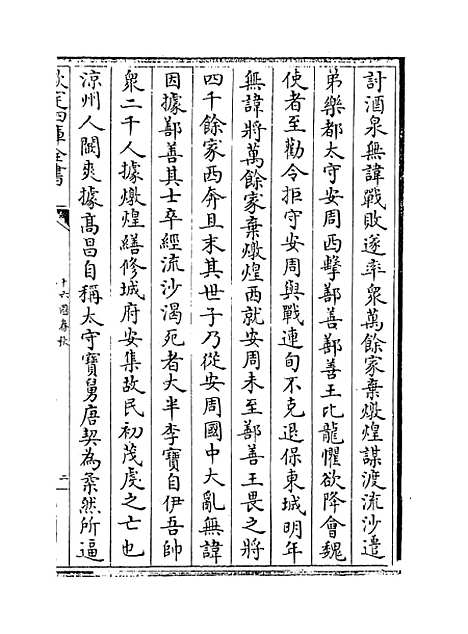 討酒泉無諱戰敗遂率衆萬餘家棄燉煌謀渡流沙遣
弟樂都太守安周西擊鄯善鄯善王比龍懼欲降會魏
使者至勸令拒守安周與戰連旬不克退保東城明年
無諱將萬餘家棄燉煌西就安周未至鄯善王畏之將
四千餘家西奔且末其世子乃從安周國中大亂無諱
因據鄯善其士卒經流沙渴死者大半李寶自伊吾帥
衆二千人據燉煌繕修城府安集故民初茂虔之亡也
涼州人闞爽據高昌自稱太守寶舅唐契為柔然所逼
欽定四庫全書
十六國春秋
二